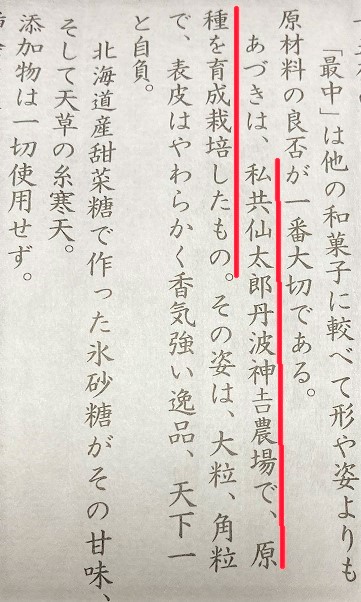 「最中」は他の和菓子に較べて形や姿よりも
原材料の良否が一番大切である。
あづきは、私共仙太郎丹波神𠮷農場で、原
種を育成栽培したもの。その姿は、大粒、角粒
で、表皮はやわらかく香気強い逸品、天下一
と自負。
北海道産甜菜糖で作った氷砂糖がその甘味、
そして天草の糸寒天。
添加物は一切使用せず。